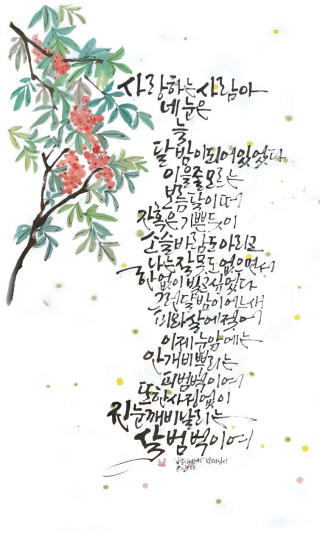 사랑하는 사람아
네 눈은
늘
달밤이 되어있었다
이울줄 모르는
보름달이 떠
자혹은 기쁜듯이
소슬바람 돋아리고
나는 잘못도 없으면서
한없이 빌고 싶었다
그런 달밤이 어느새
피와 살에 젖어
이제 눈앞에는
안개비 뿌리는
피범벅이여
또한 사정없이
진눈깨비 날리는
살범벅이여